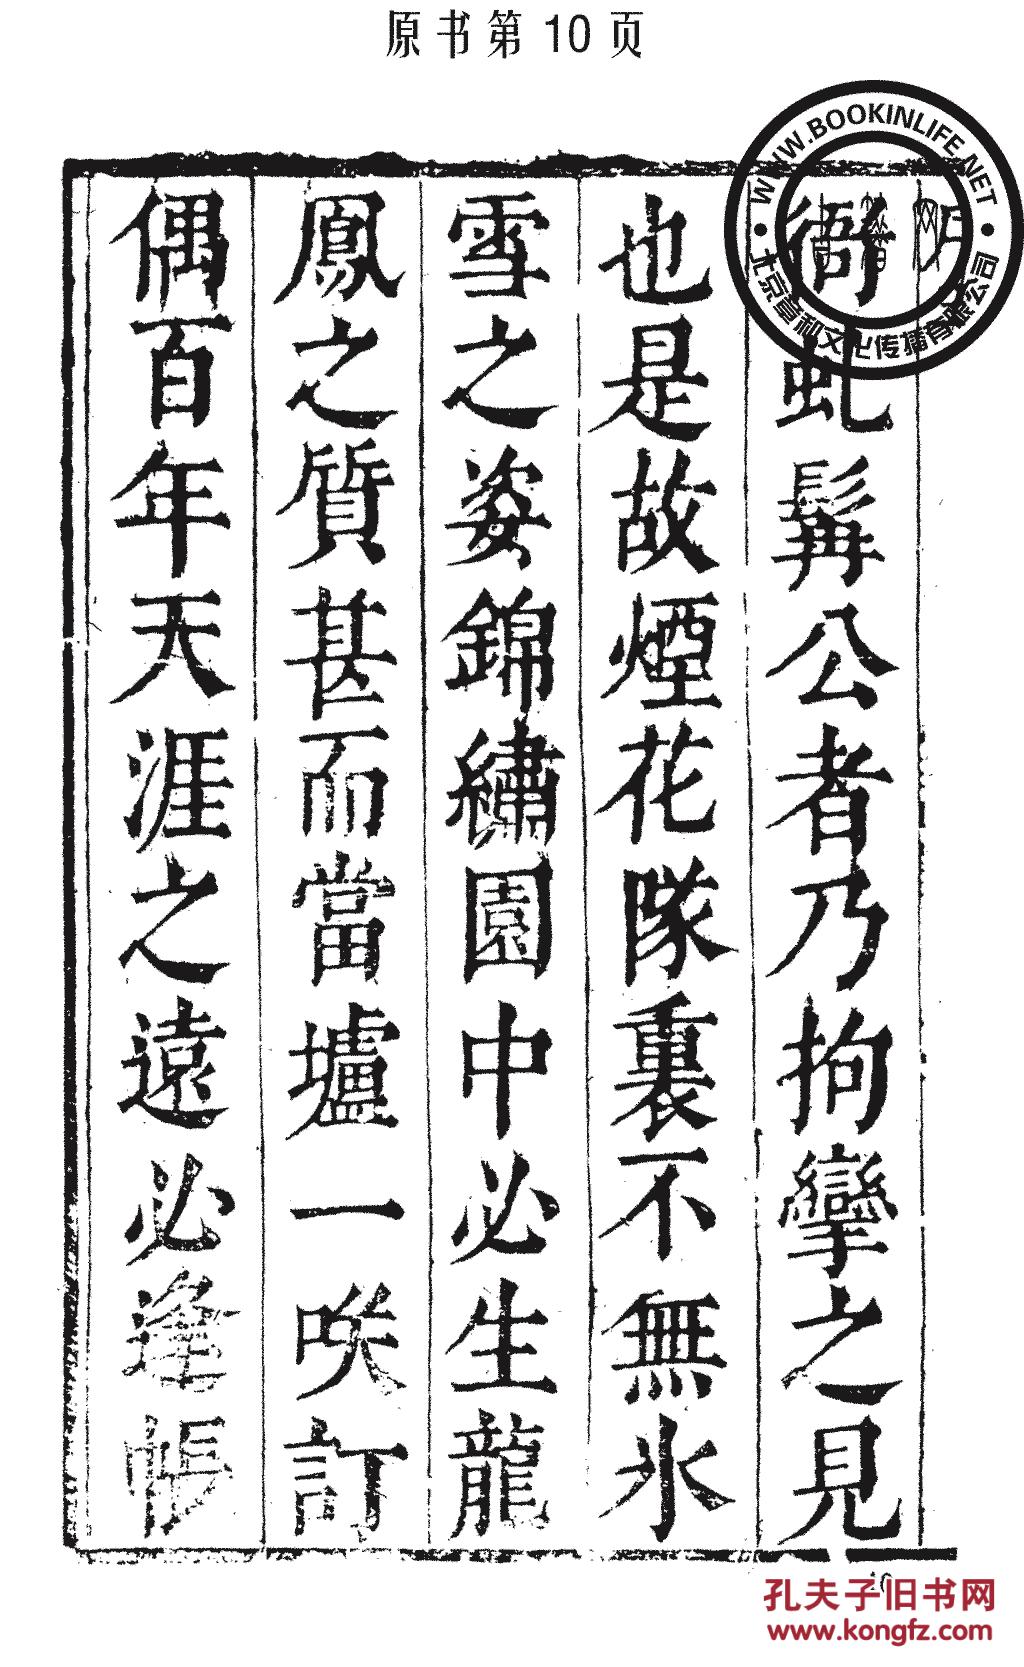 原书第10页
WWW.BOOKINLIFE.NET
北京意和文化传播有限公司
衙虬髯公者乃拘攣之見
也是故煙花隊裏不無氷
雪之姿錦繡園中必生龍
鳳之質甚而當壚一咲訂
偶百年天涯之遠必逢帳
孔夫子旧书网
www.kongfz.com